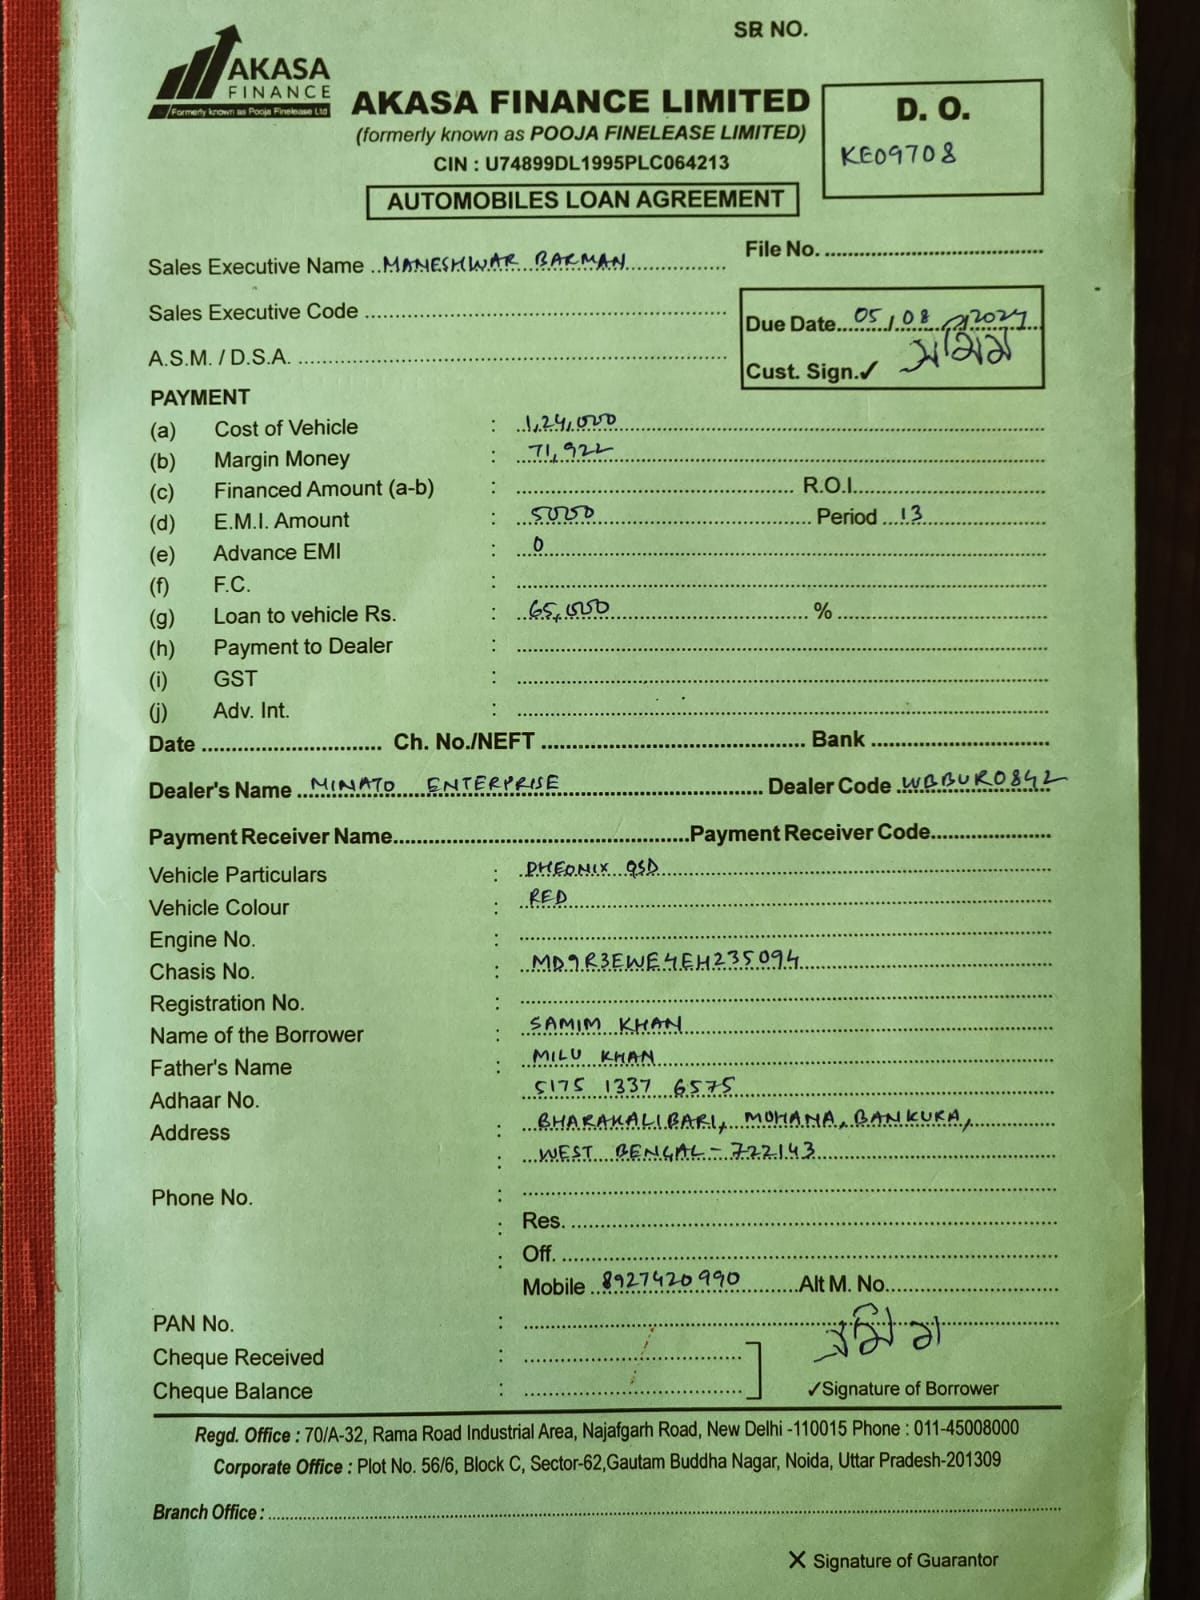 SR NO.
AKASA
FINANCE
Formerly known as Pooja Finelease Ltd
AKASA FINANCE LIMITED
(formerly known as POOJA FINELEASE LIMITED)
CIN : U74899DL1995PLC064213
AUTOMOBILES LOAN AGREEMENT
D. O.
KE09708
File No.
Sales Executive Name MANESHWAR BARMAN
Sales Executive Code
A.S.M. / D.S.A.
Due Date 05/08/2024
Cust. Sign.✓ সামিম
PAYMENT
(a) Cost of Vehicle : 1,24,000
(b) Margin Money : 71,922
(c) Financed Amount (a-b) : R.O.I.
(d) E.M.I. Amount : 5000 Period 13
(e) Advance EMI : 0
(f) F.C. :
(g) Loan to vehicle Rs. : 65,000 %
(h) Payment to Dealer :
(i) GST :
(j) Adv. Int. :
Date Ch. No./NEFT Bank
Dealer's Name MINATO ENTERPRISE Dealer Code WBBUR0842
Payment Receiver Name Payment Receiver Code
Vehicle Particulars : PHEONIX QSD
Vehicle Colour : RED
Engine No. :
Chasis No. : MD9R3EWE4EH235094
Registration No. :
Name of the Borrower : SAMIM KHAN
Father's Name : MILU KHAN
Adhaar No. 5175 1337 6575
Address : BHARAKALIBARI, MOHANA, BANKURA,
: WEST BENGAL - 722143
Phone No. :
: Res.
: Off.
Mobile 8927420990 Alt M. No.
PAN No. :
Cheque Received :
Cheque Balance :
সামিম
✓Signature of Borrower
Regd. Office : 70/A-32, Rama Road Industrial Area, Najafgarh Road, New Delhi -110015 Phone : 011-45008000
Corporate Office : Plot No. 56/6, Block C, Sector-62,Gautam Buddha Nagar, Noida, Uttar Pradesh-201309
Branch Office :
X Signature of Guarantor